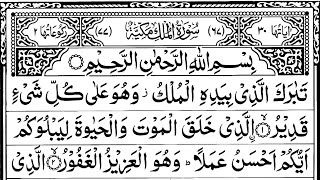 اٰيَاتُهَا ٣٠ (٦٧) سُوْرَةُ الْمُلْكِ مَكِّيَّةٌ (٧٧) رُكُوْعَاتُهَا ٢
بِسْمِ اللّٰهِ الرَّحْمٰنِ الرَّحِيْمِ
تَبٰرَكَ الَّذِيْ بِيَدِهِ الْمُلْكُ ز وَهُوَ عَلٰى كُلِّ شَيْءٍ
قَدِيْرُ ۙ۝١ اِلَّذِيْ خَلَقَ الْمَوْتَ وَالْحَيٰوةَ لِيَبْلُوَكُمْ
اَيُّكُمْ اَحْسَنُ عَمَلًا ؕ وَهُوَ الْعَزِيْزُ الْغَفُوْرُ ۙ۝٢ الَّذِيْ